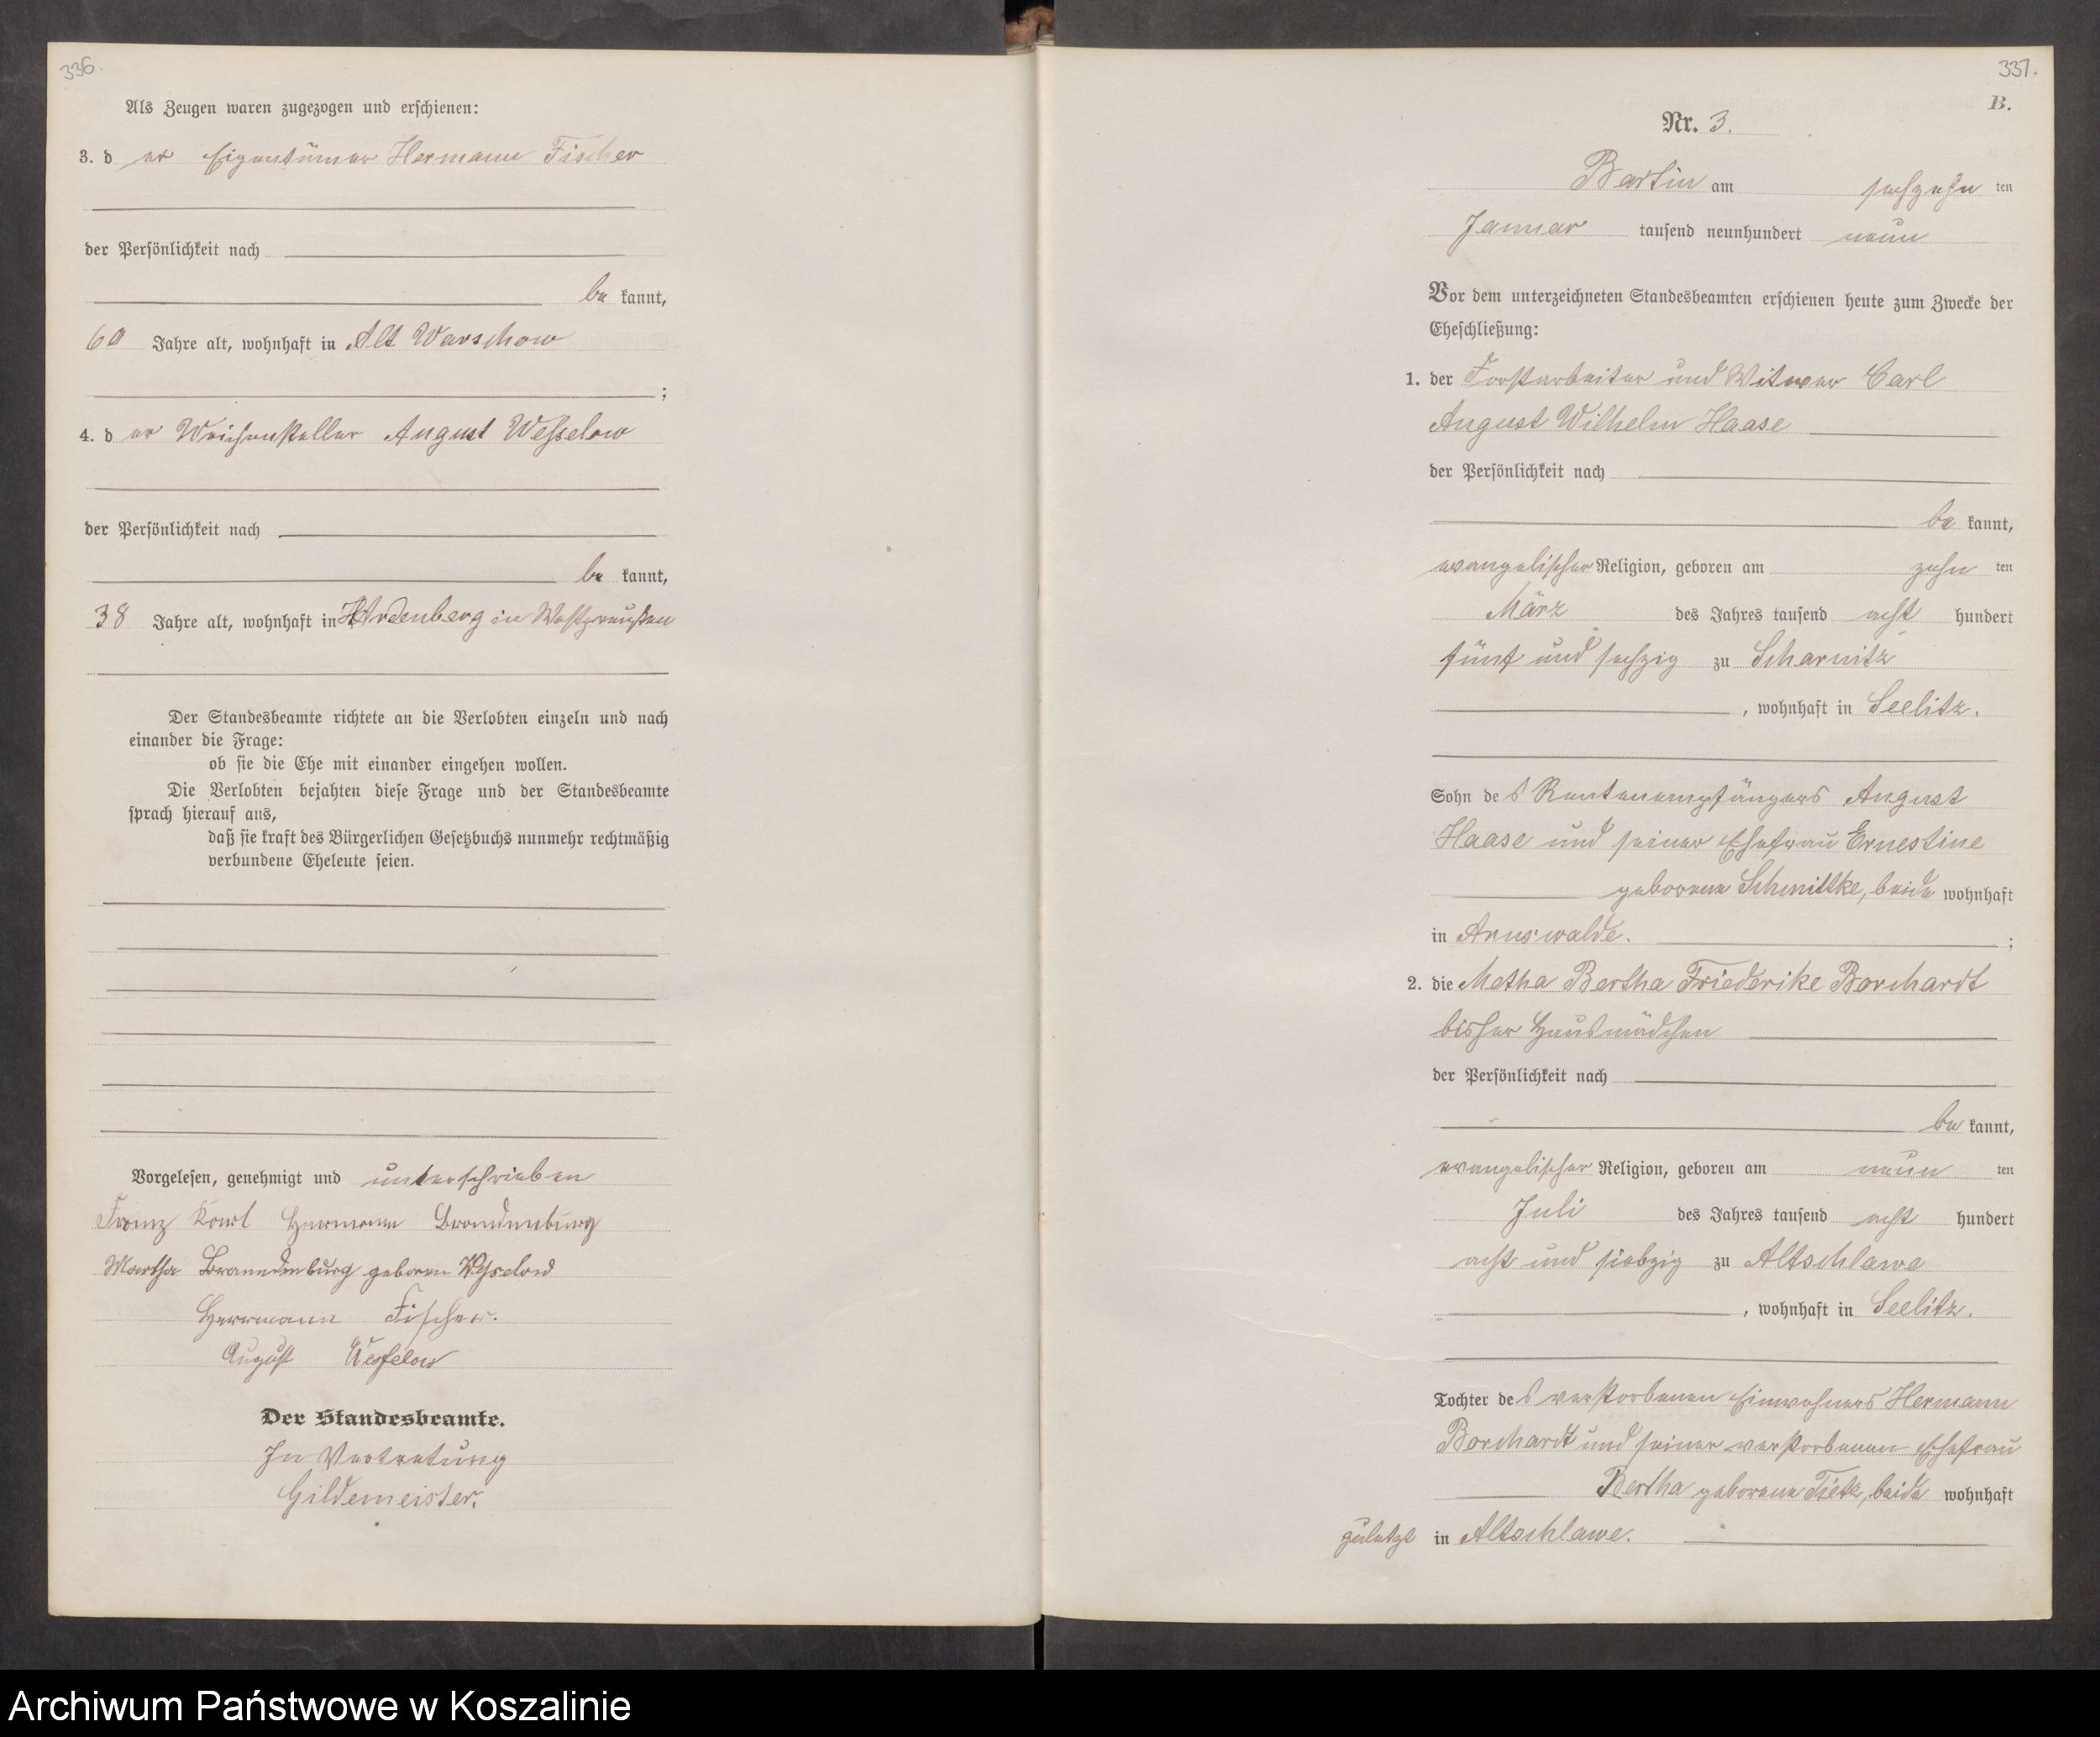 336.
Als Zeugen waren zugezogen und erschienen:
3. d er Eigentümer Hermann Fischer
der Persönlichkeit nach
be kannt,
60 Jahre alt, wohnhaft in Alt Warschow
;
4. d er Weichensteller August Wesselow
der Persönlichkeit nach
be kannt,
38 Jahre alt, wohnhaft in Hardenberg in Westpreußen
Der Standesbeamte richtete an die Verlobten einzeln und nach
einander die Frage:
ob sie die Ehe mit einander eingehen wollen.
Die Verlobten bejahten diese Frage und der Standesbeamte
sprach hierauf aus,
daß sie kraft des Bürgerlichen Gesetzbuchs nunmehr rechtmäßig
verbundene Eheleute seien.
Vorgelesen, genehmigt und unterschrieben
Franz Karl Hermann Brandenburg
Martha Brandenburg geboren Wesselow
Herrmann Fischer.
August Wesselow
Der Standesbeamte.
In Vertretung
Gildemeister.
337.
B.
Nr. 3.
Bartin am sechzehn ten
Januar tausend neunhundert neun
Vor dem unterzeichneten Standesbeamten erschienen heute zum Zwecke der
Eheschließung:
1. der Forstarbeiter und Witwer Carl
August Wilhelm Haase
der Persönlichkeit nach
be kannt,
evangelischer Religion, geboren am zehn ten
März des Jahres tausend acht hundert
fünf und sechzig zu Scharnitz
, wohnhaft in Seelitz.
Sohn de s Rentenempfängers August
Haase und seiner Ehefrau Ernestine
geborene Schmittke, beide wohnhaft
in Arnswalde. ;
2. die Metha Bertha Friederike Borchardt
bisher Hausmädchen
der Persönlichkeit nach
be kannt,
evangelischer Religion, geboren am neun ten
Juli des Jahres tausend acht hundert
acht und siebzig zu Altschlawe
, wohnhaft in Seelitz.
Tochter de s verstorbenen Einwohners Hermann
Borchardt und seiner verstorbenen Ehefrau
Bertha geborene Tietz, beide wohnhaft
zuletzt in Altschlawe.
Archiwum Państwowe w Koszalinie